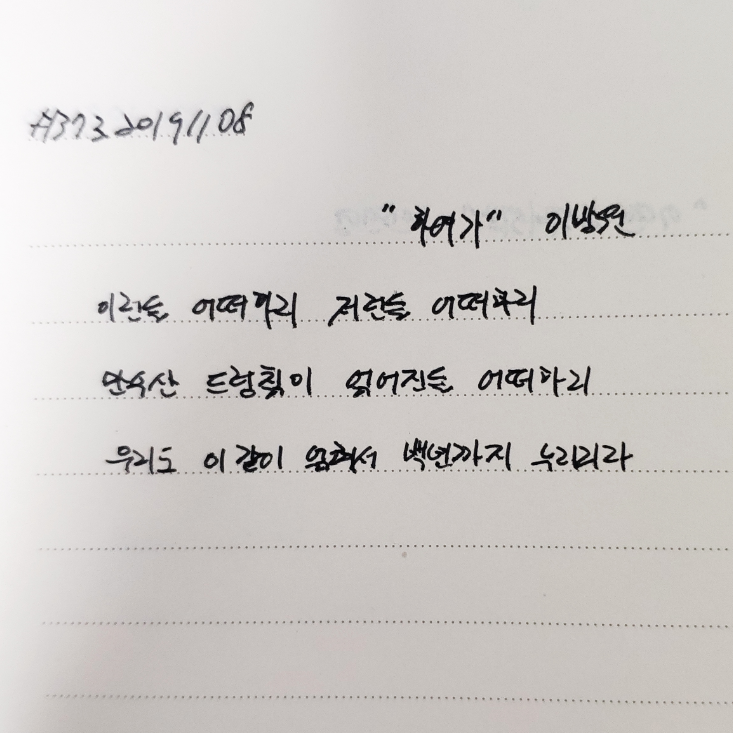 #373 20191108
"하여가" 이방원
이런들 어떠하리 저런들 어떠하리
만수산 드렁칡이 얽어진들 어떠하리
우리도 이같이 얽혀서 백년까지 누리리라